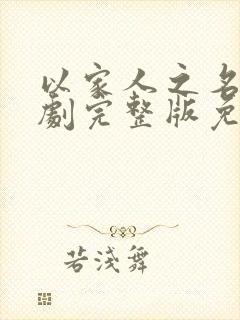 以家人之名
劇完整版免
若淺舞